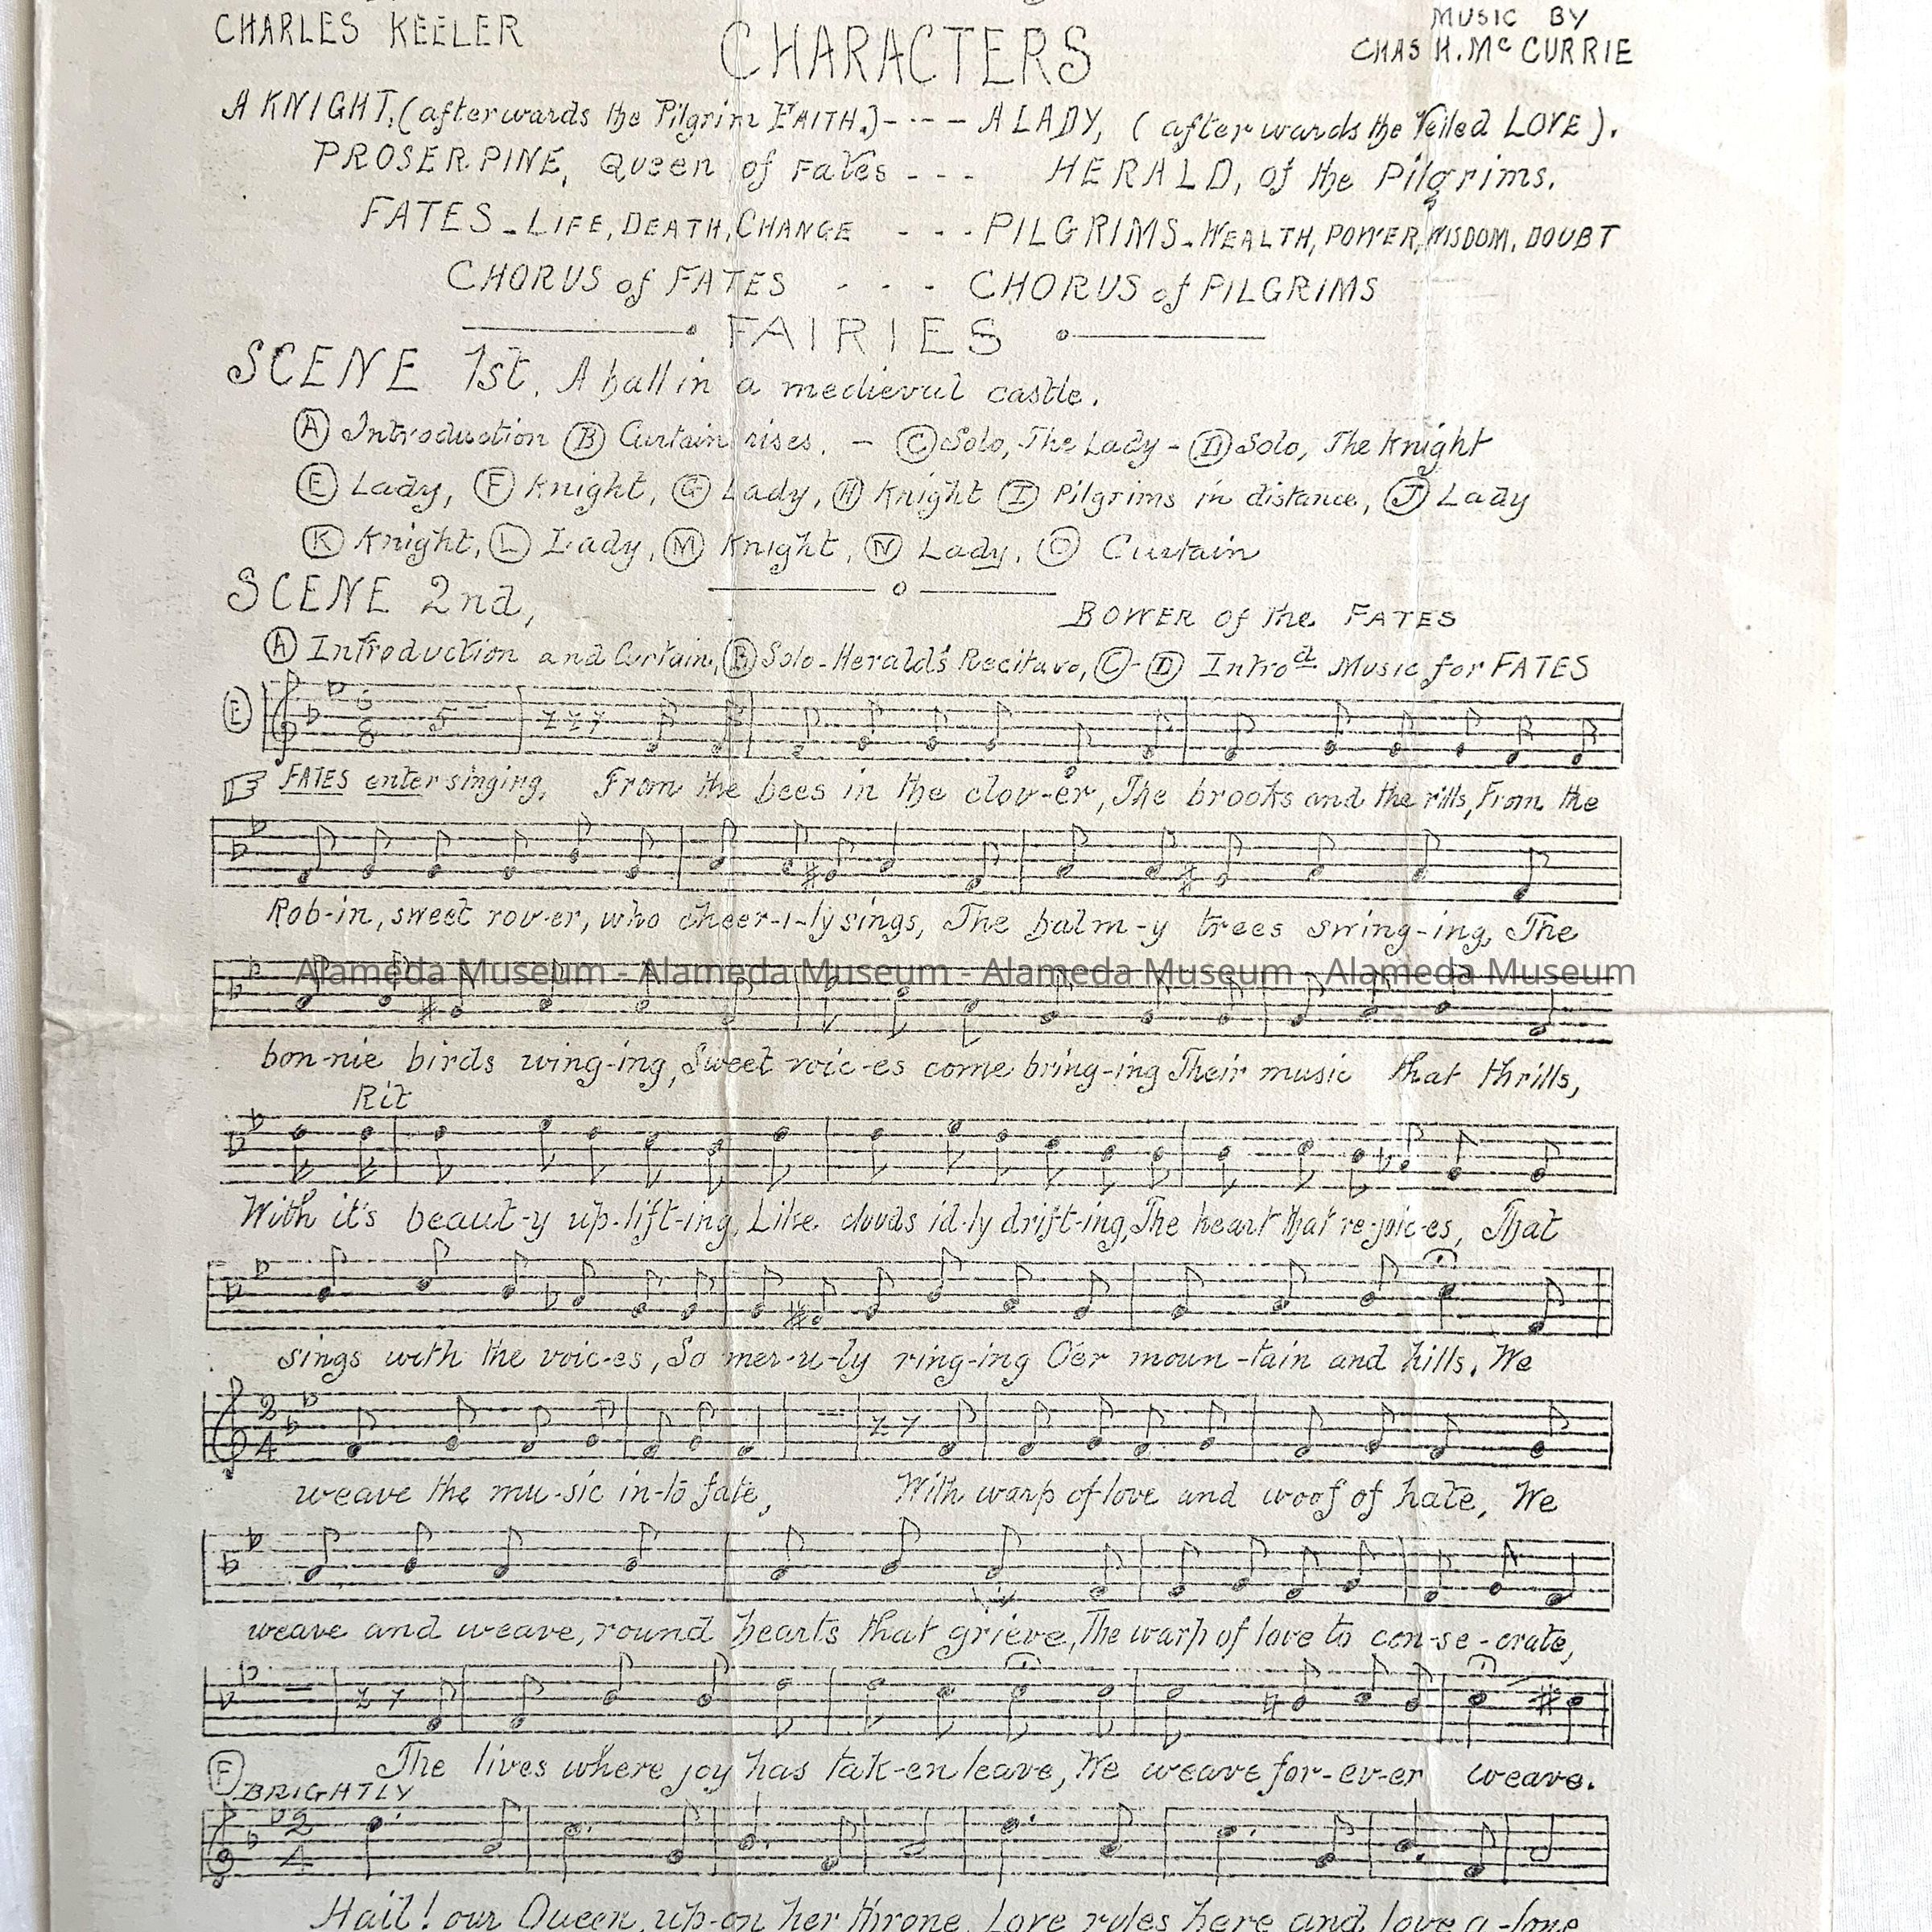 CHARLES KEELER
CHARACTERS
MUSIC BY
CHAS H. Mc CURRIE
A KNIGHT, (afterwards the Pilgrim FAITH.) - - - - A LADY, (afterwards the Veiled LOVE).
PROSERPINE, Queen of Fates - - - HERALD, of the Pilgrims.
FATES - LIFE, DEATH, CHANGE - - - PILGRIMS - WEALTH, POWER, WISDOM, DOUBT
CHORUS of FATES - - - CHORUS of PILGRIMS
FAIRIES
SCENE 1st. A ball in a medieval castle.
(A) Introduction (B) Curtain rises. - (C) Solo, The Lady - (D) Solo, The Knight
(E) Lady, (F) Knight, (G) Lady, (H) Knight (I) Pilgrims in distance, (J) Lady
(K) Knight, (L) Lady, (M) Knight, (N) Lady, (O) Curtain
SCENE 2nd,
BOWER of the FATES
(A) Introduction and Curtain, (B) Solo - Herald's Recitavo, (C) - (D) Introd Music for FATES
(E) 6 8
FATES enter singing, From the bees in the clov-er, The brooks and the rills, From the
Rob-in, sweet rov-er, who cheer-i-ly sings, The balm-y trees swing-ing, The
Alameda Museum - Alameda Museum - Alameda Museum - Alameda Museum
bon-nie birds wing-ing, Sweet voic-es come bring-ing Their music that thrills,
Rit
With it's beaut-y up-lift-ing, Like clouds id-ly drift-ing, The heart that re-joic-es, That
sings with the voic-es, So mer-ri-ly ring-ing O'er moun-tain and hills. We
2 4
weave the mu-sic in-to fate, With warp of love and woof of hate, We
weave and weave, round hearts that grieve, The warp of love to con-se-crate,
The lives where joy has tak-en leave, We weave for-ev-er weave.
(F) BRIGHTLY
2 4
Hail! our Queen, up-on her throne, Love rules here and love a-lone